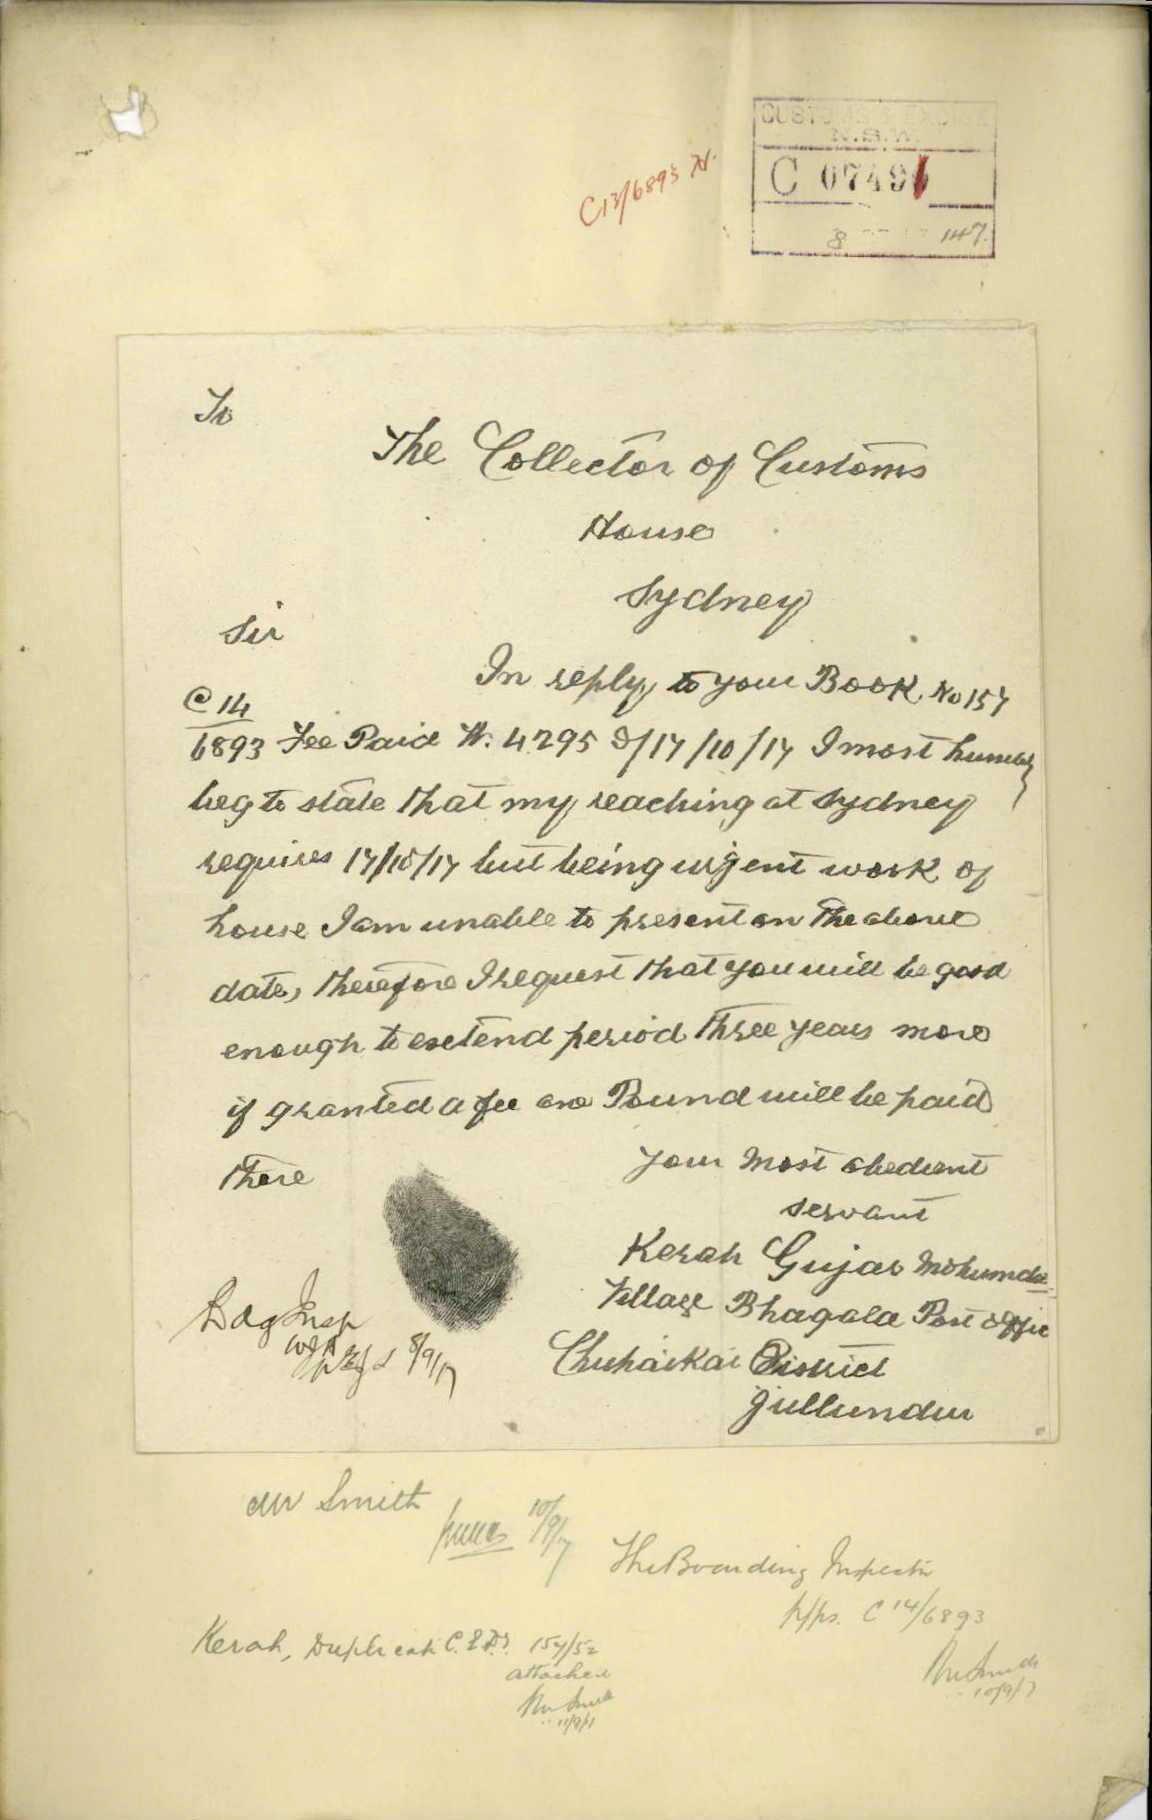 CUSTOMS & EXCISE
N.S.W.
C 0749
8 147
C13/6893 N.
To
The Collector of Customs
House
Sydney
Sir
In reply to your Book No 157
C 14
6893 Fee Paid N. 4295 D/17/10/17 I most humbly
beg to state that my reaching at Sydney
requires 17/10/17 but being urgent work of
house I am unable to present on the above
date, therefore I request that you will be good
enough to exetend period three years more
if granted a fee one Pound will be paid
there
your most obedient
servant
Kerah Gujar Mohumdan
Village Bhagala Post Office
Chuharkai District
Jullundur
Bdg Insp
8/9/17
Mr Smith
10/9/17
The Boarding Inspector
p/ps. C 14/6893
10/9/17
Kerah, Duplicate C.E.D.T. 157/52
attached
11/9/17